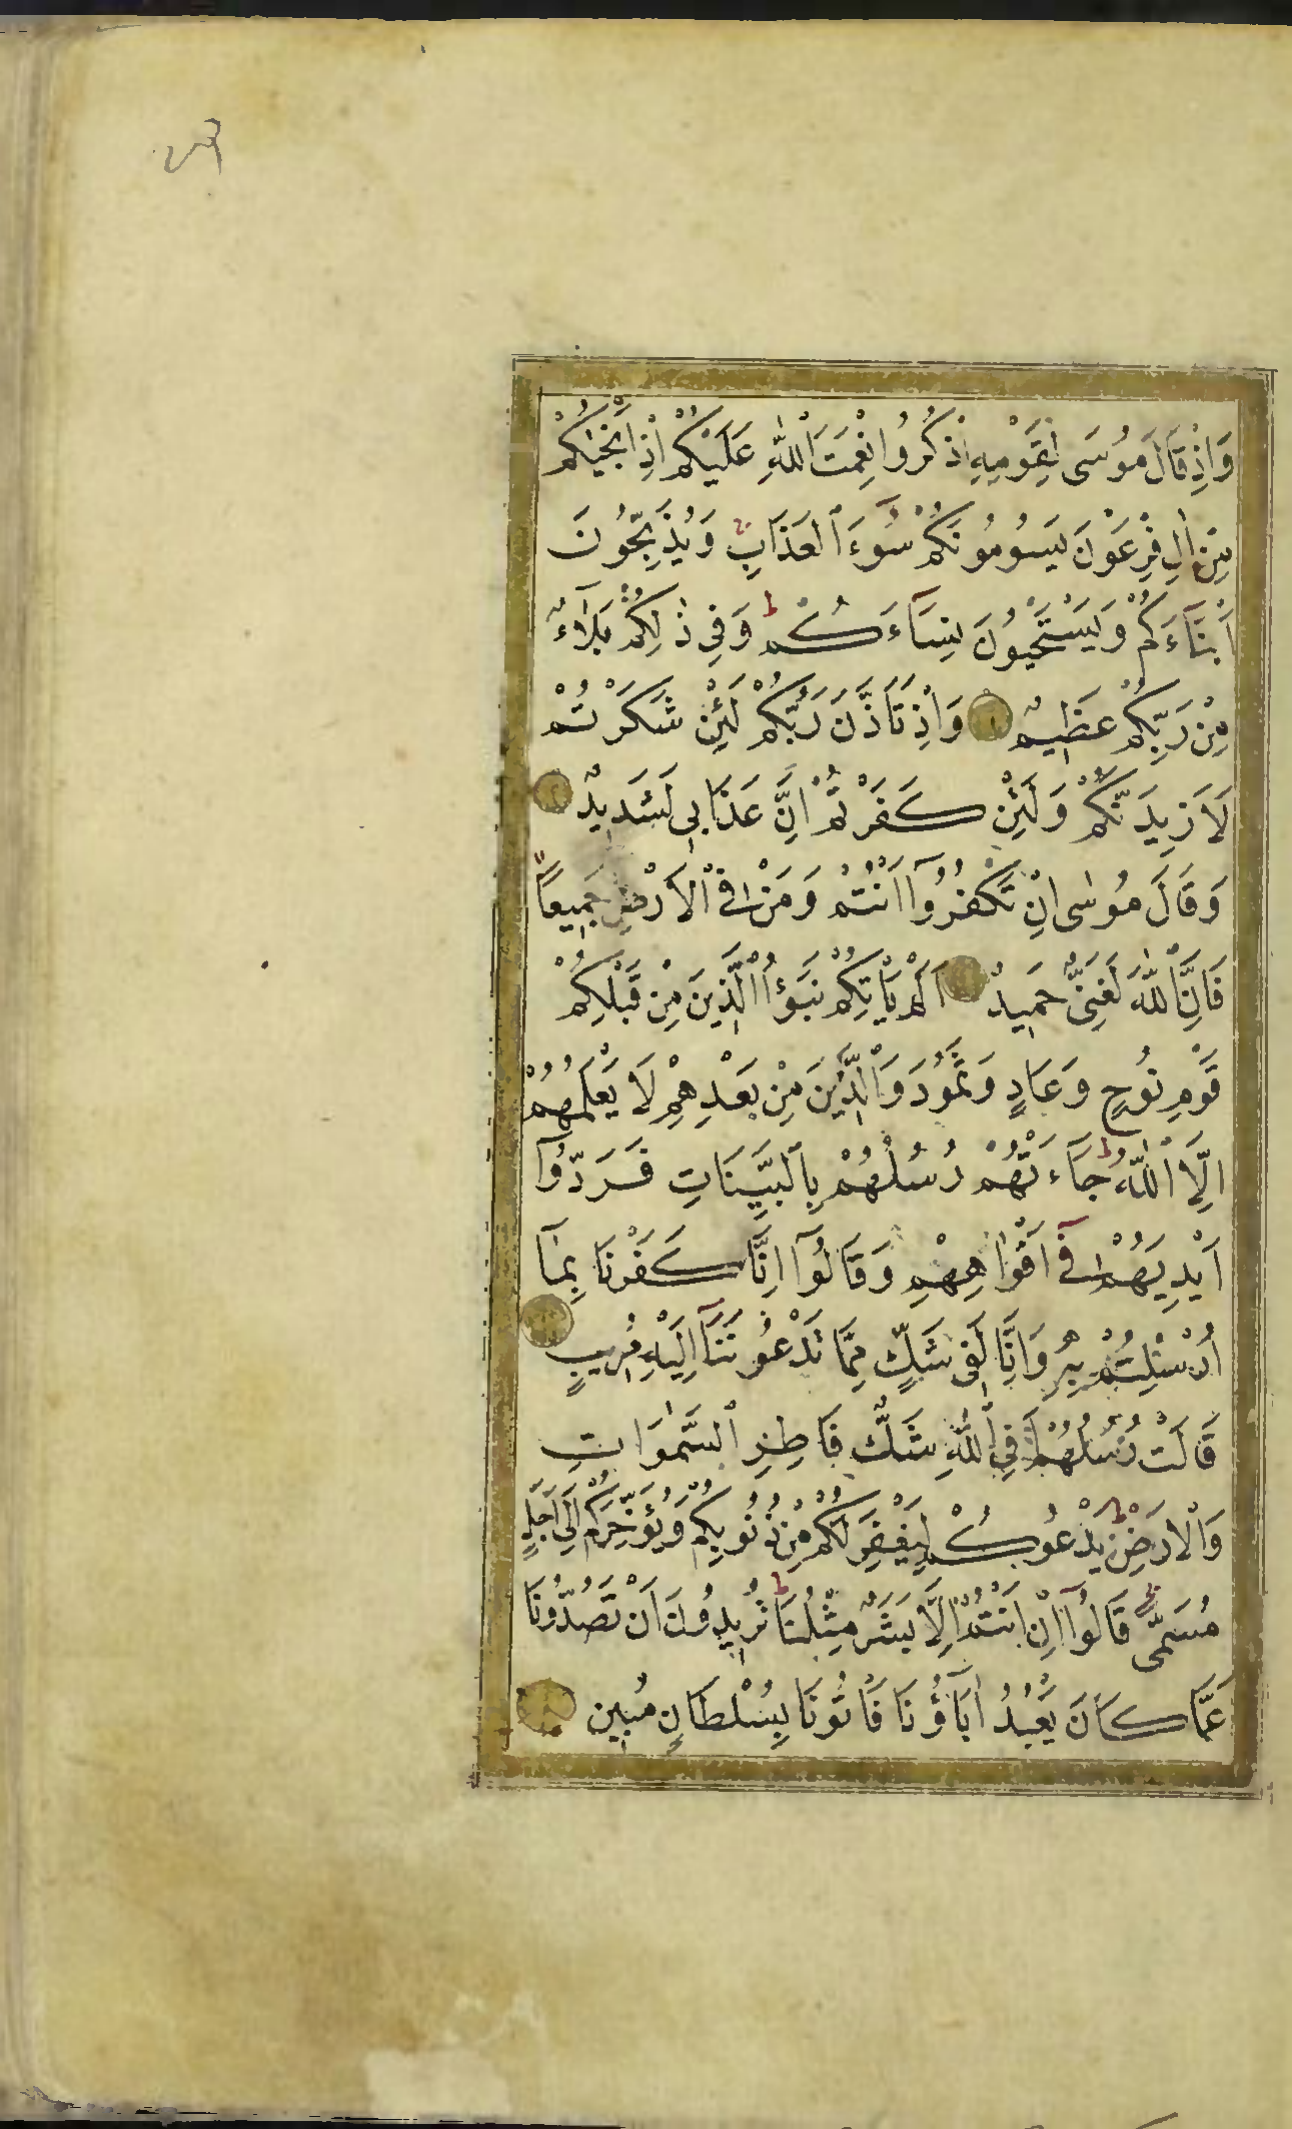 وَاِذْ قَالَ مُوسَى لِقَوْمِهِ اذْكُرُوا نِعْمَتَ اللّٰهِ عَلَيْكُمْ اِذْ اَنْجٰيكُمْ
مِنْ اٰلِ فِرْعَوْنَ يَسُومُونَكُمْ سُٓوءَ الْعَذَابِ وَيُذَبِّحُونَ
اَبْنَاءَكُمْ وَيَسْتَحْيُونَ نِسَٓاءَكُمْ ط وَفِي ذٰلِكُمْ بَلَٓاءٌ
مِنْ رَبِّكُمْ عَظِيمٌ وَاِذْ تَاَذَّنَ رَبُّكُمْ لَئِنْ شَكَرْتُمْ
لَاَزِيدَنَّكُمْ وَلَئِنْ كَفَرْتُمْ اِنَّ عَذَابِي لَشَدِيدٌ
وَقَالَ مُوسٰى اِنْ تَكْفُرُٓوا اَنْتُمْ وَمَنْ فِي الْاَرْضِ جَمِيعاً
فَاِنَّ اللّٰهَ لَغَنِيٌّ حَمِيدٌ اَلَمْ يَاْتِكُمْ نَبَؤُا الَّذِينَ مِنْ قَبْلِكُمْ
قَوْمِ نُوحٍ وَعَادٍ وَثَمُودَ وَالَّذِينَ مِنْ بَعْدِهِمْ لَا يَعْلَمُهُمْ
اِلَّا اللّٰهُ ط جَٓاءَتْهُمْ رُسُلُهُمْ بِالْبَيِّنَاتِ فَرَدُّٓوا
اَيْدِيَهُمْ فِٓي اَفْوَاهِهِمْ وَقَالُٓوا اِنَّا كَفَرْنَا بِمَٓا
اُرْسِلْتُمْ بِهِ وَاِنَّا لَفِي شَكٍّ مِمَّا تَدْعُونَنَٓا اِلَيْهِ مُرِيبٍ
قَالَتْ رُسُلُهُمْ اَفِي اللّٰهِ شَكٌّ فَاطِرِ السَّمٰوَاتِ
وَالْاَرْضِ ط يَدْعُوكُمْ لِيَغْفِرَ لَكُمْ مِنْ ذُنُوبِكُمْ وَيُؤَخِّرَكُمْ اِلَٓى اَجَلٍ
مُسَمًّى قَالُٓوا اِنْ اَنْتُمْ اِلَّا بَشَرٌ مِثْلُنَا ط تُرِيدُونَ اَنْ تَصُدُّونَا
عَمَّا كَانَ يَعْبُدُ اٰبَاؤُنَا فَاْتُونَا بِسُلْطَانٍ مُبِينٍ